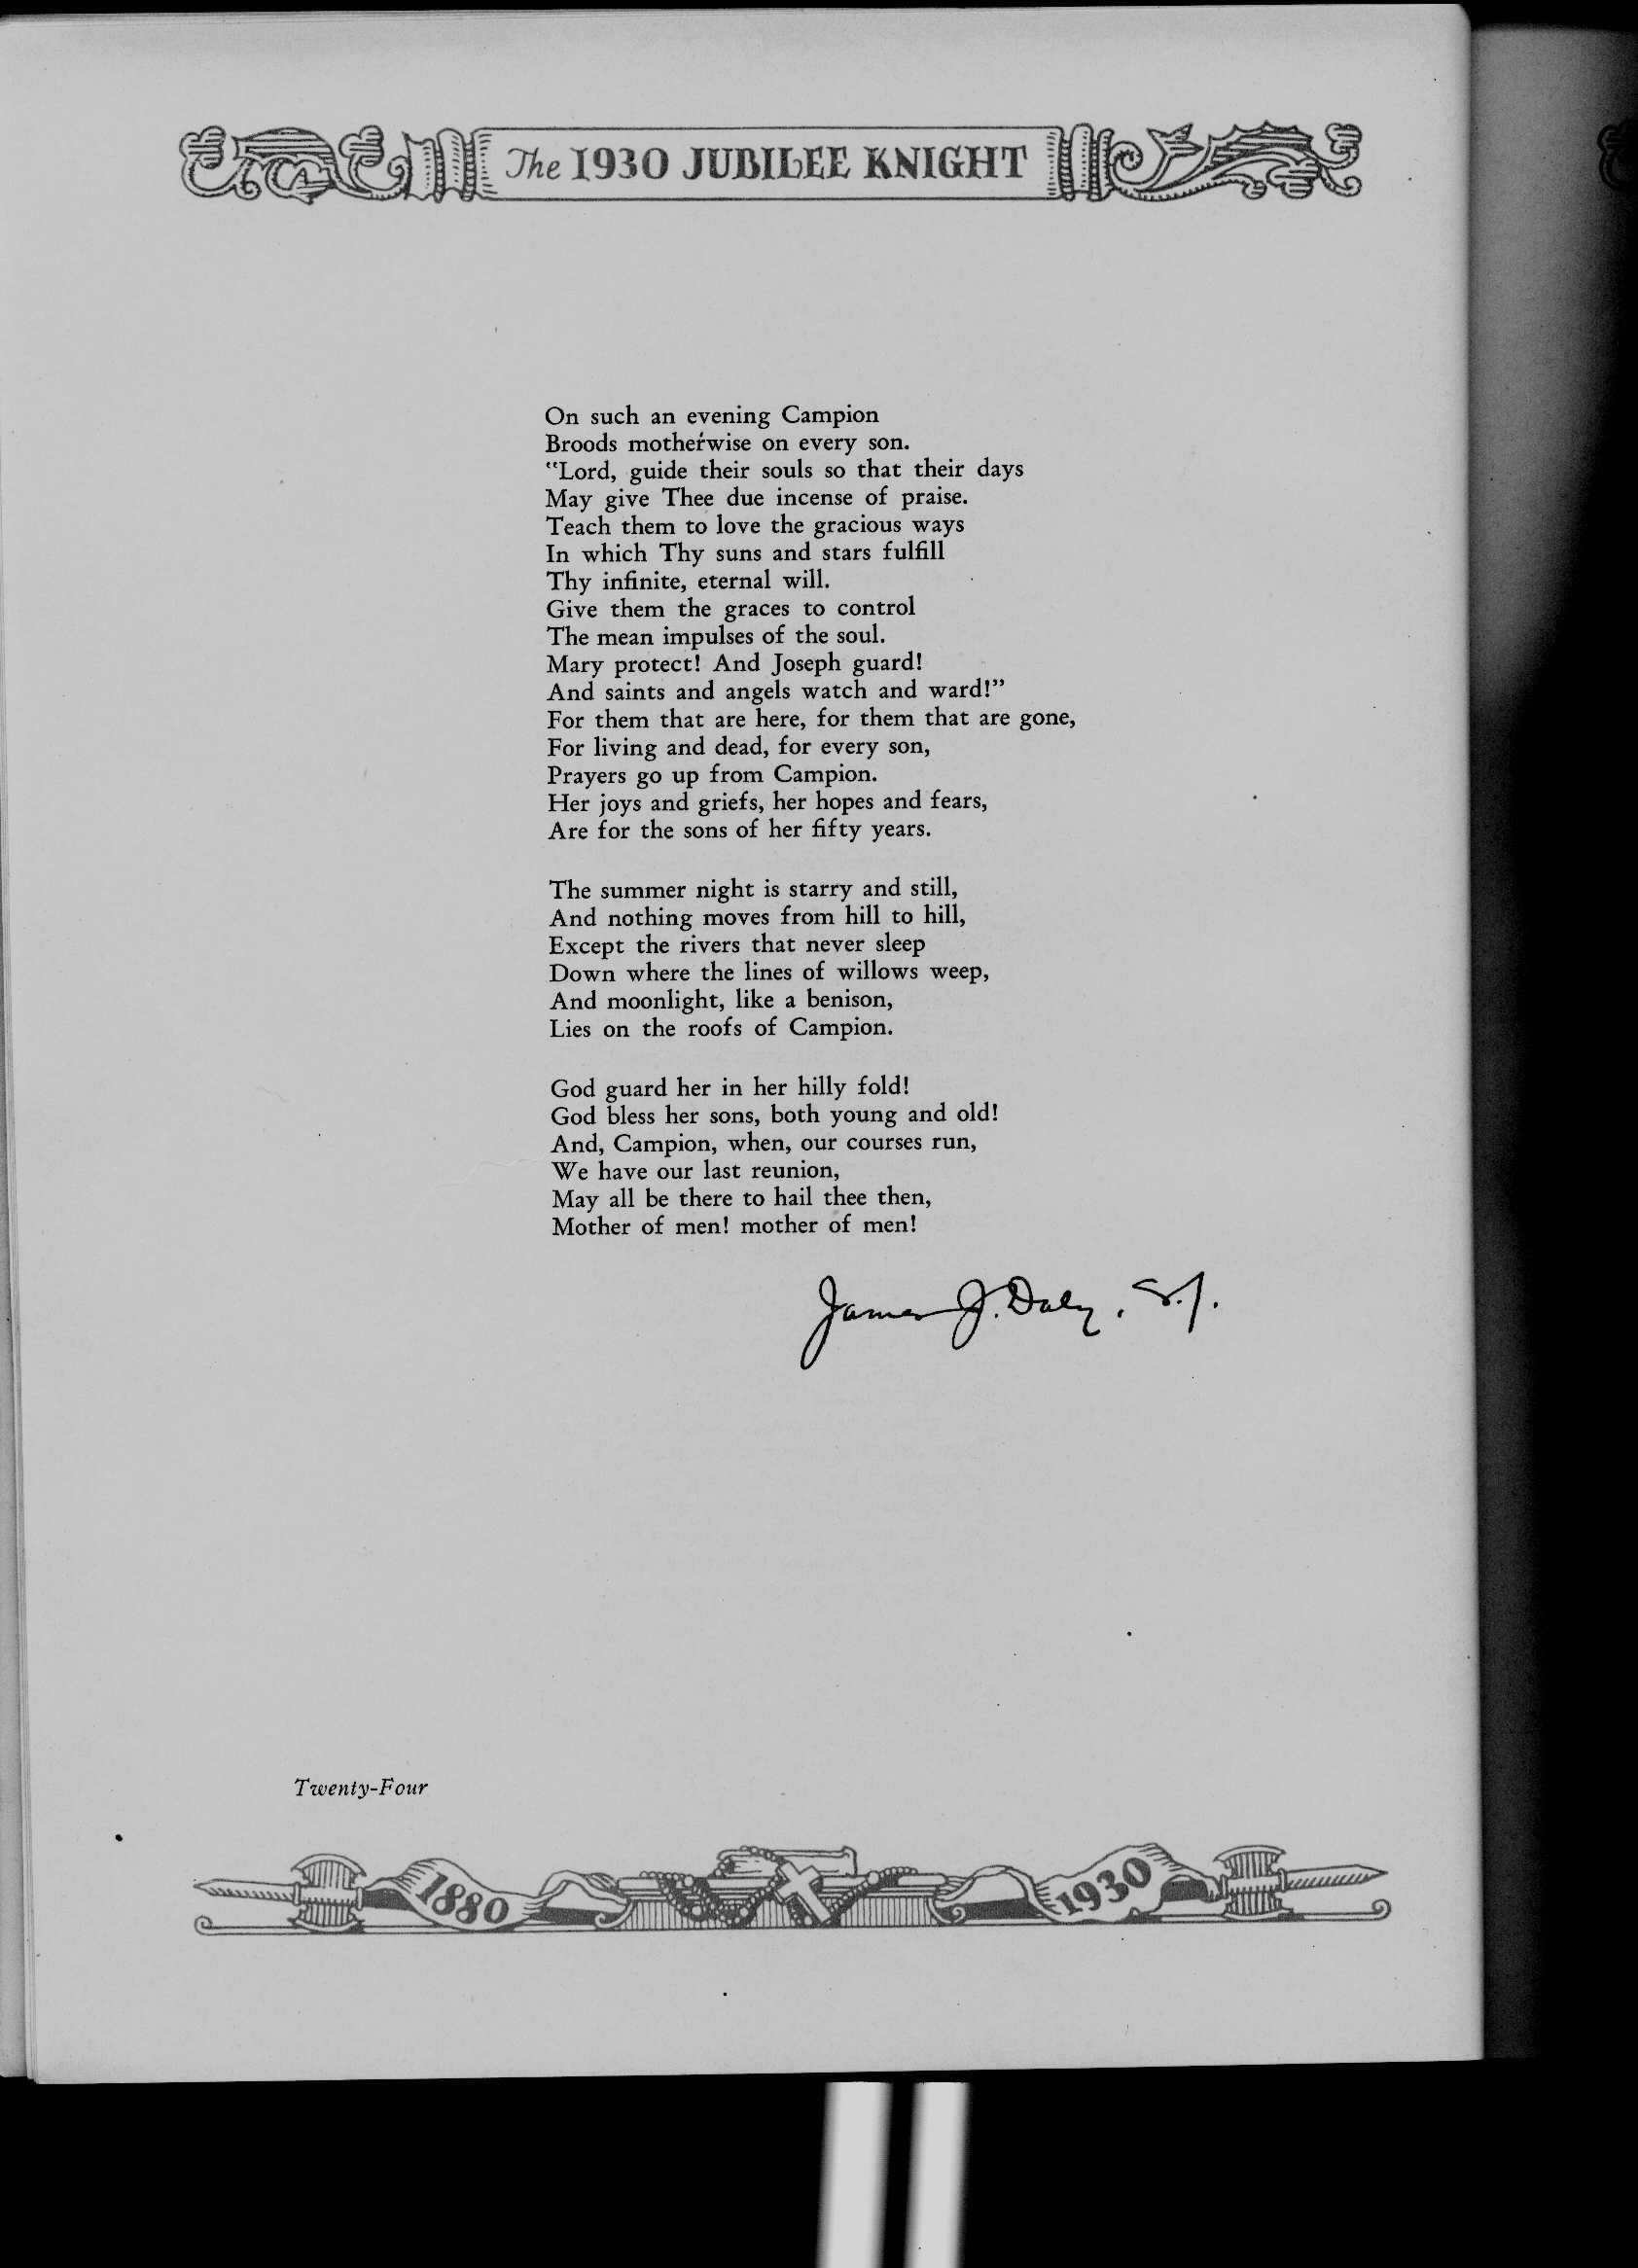 The 1930 JUBILEE KNIGHT
On such an evening Campion
Broods motherwise on every son.
"Lord, guide their souls so that their days
May give Thee due incense of praise.
Teach them to love the gracious ways
In which Thy suns and stars fulfill
Thy infinite, eternal will.
Give them the graces to control
The mean impulses of the soul.
Mary protect! And Joseph guard!
And saints and angels watch and ward!"
For them that are here, for them that are gone,
For living and dead, for every son,
Prayers go up from Campion.
Her joys and griefs, her hopes and fears,
Are for the sons of her fifty years.
The summer night is starry and still,
And nothing moves from hill to hill,
Except the rivers that never sleep
Down where the lines of willows weep,
And moonlight, like a benison,
Lies on the roofs of Campion.
God guard her in her hilly fold!
God bless her sons, both young and old!
And, Campion, when, our courses run,
We have our last reunion,
May all be there to hail thee then,
Mother of men! mother of men!
James J. Daly, S.J.
Twenty-Four
1880
1930